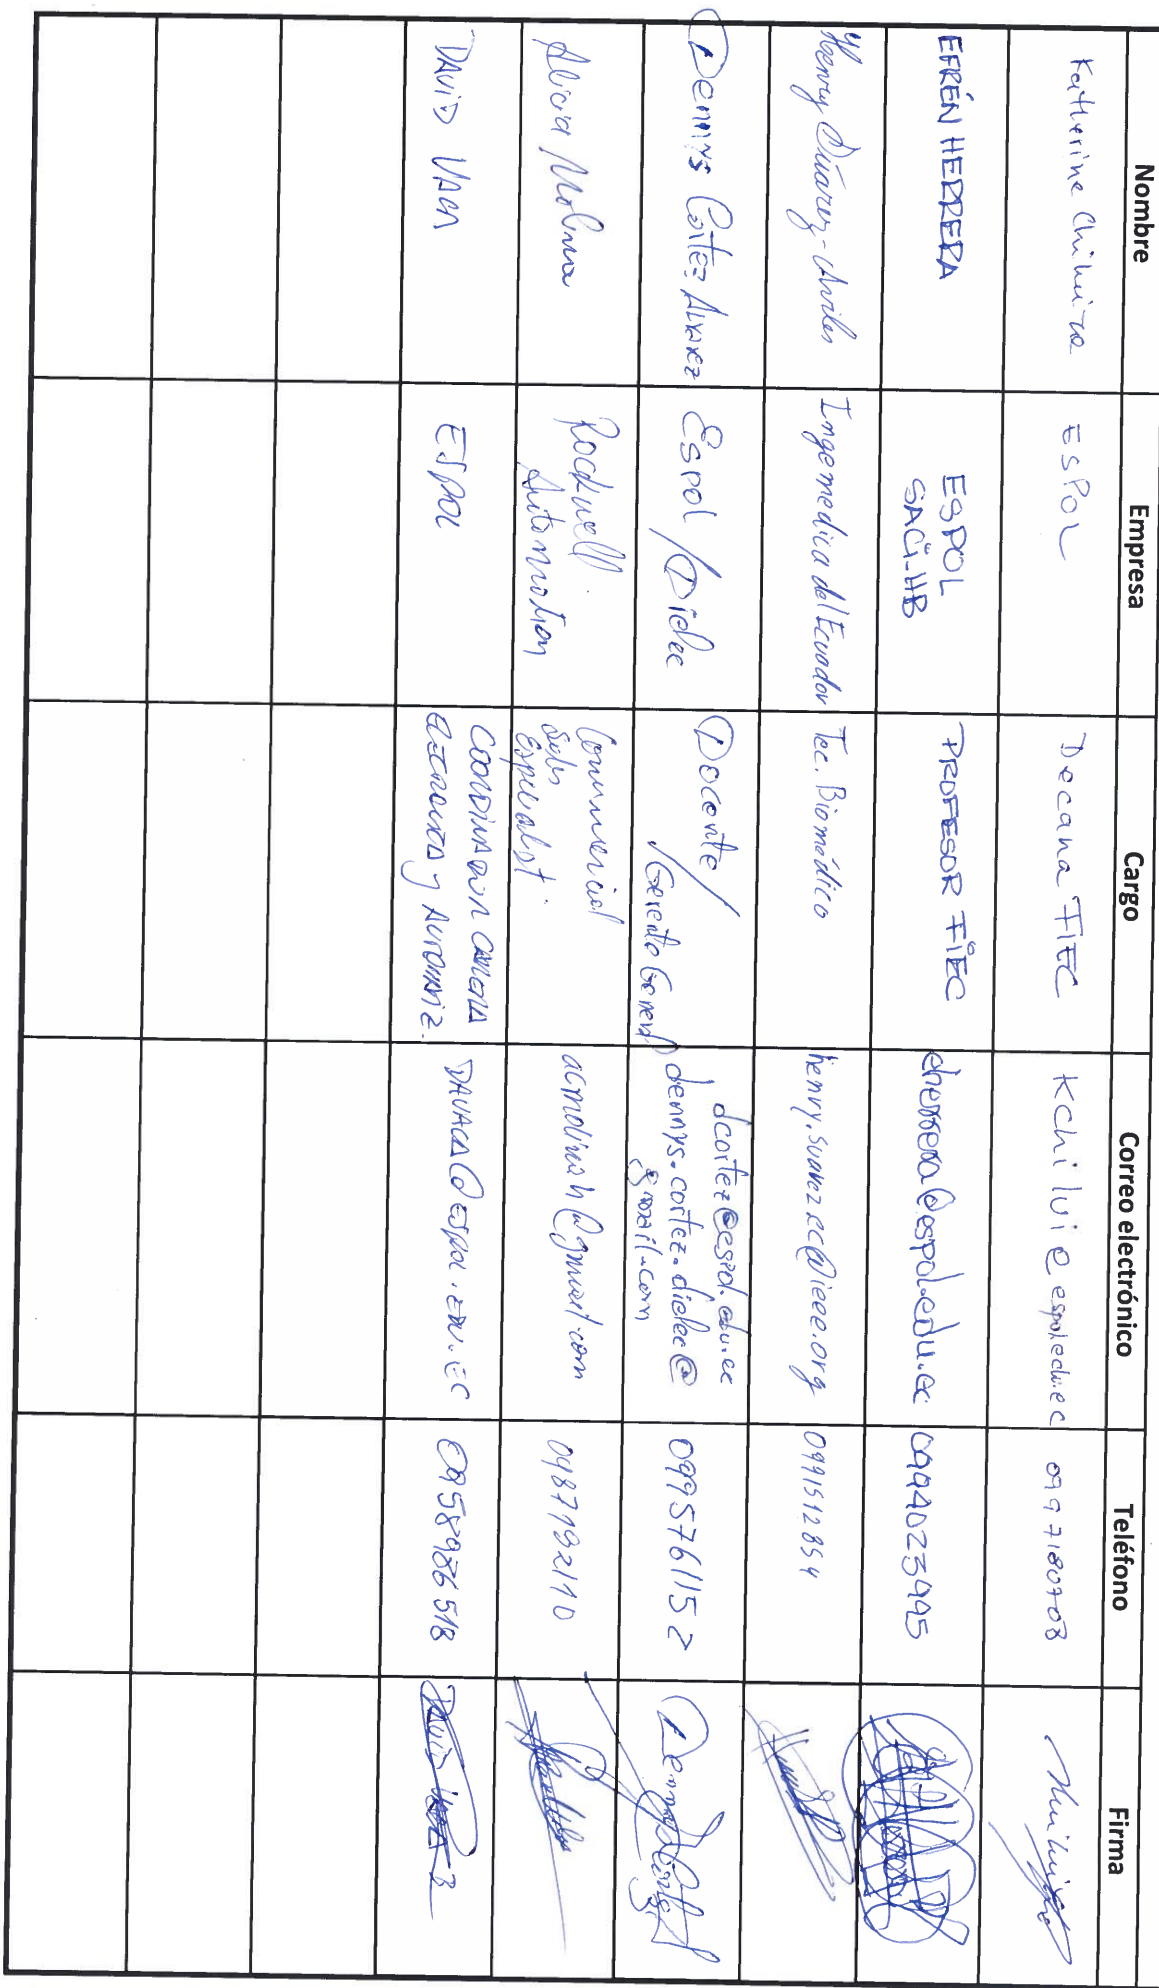 Nombre Empresa Cargo Correo electrónico Teléfono Firma
Katherine Chiluiza ESPOL Decana FIEC kchilui@espol.edu.ec 0997180708
EFRÉN HERRERA ESPOL SACI-HB PROFESOR FIEC eherrera@espol.edu.ec
Henry Súarez-Aviles Ingemedica del Ecuador Tec. Biomédico henry.suarez.ec@ieee.org 0991512854
Dennys Cortez Alvarez Espol / Dielec Docente / Gerente General dcortez@espol.edu.ec dennys.cortez.dielec@gmail.com 0995761152
Alicia Molina Rockwell Automation Commercial Sales Especialist. acmolinah@gmail.com 0987192110
DAVID VACA ESPOL COORDINADOR CARRERA ELECTRONICA y AUTOMATIZ. DAVACA@ESPOL.EDU.EC 0958986518